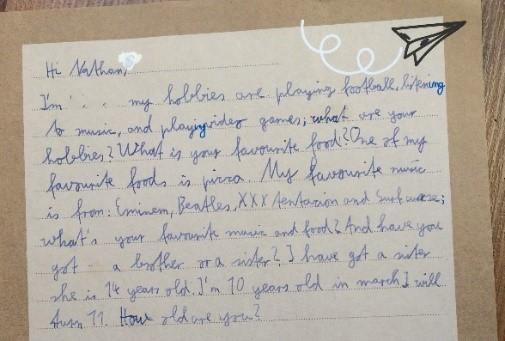 Hi Nathan,
I'm my hobbies are playing football, listening
to music, and playing video games; what are your
hobbies? What is your favourite food? One of my
favourite foods is pizza. My favourite music
is from: Eminem, Beatles, XXXtentacion and
what's your favourite music and food? And have you
got a brother or a sister? I have got a sister
she is 14 years old. I'm 10 years old in march I will
turn 11. How old are you?